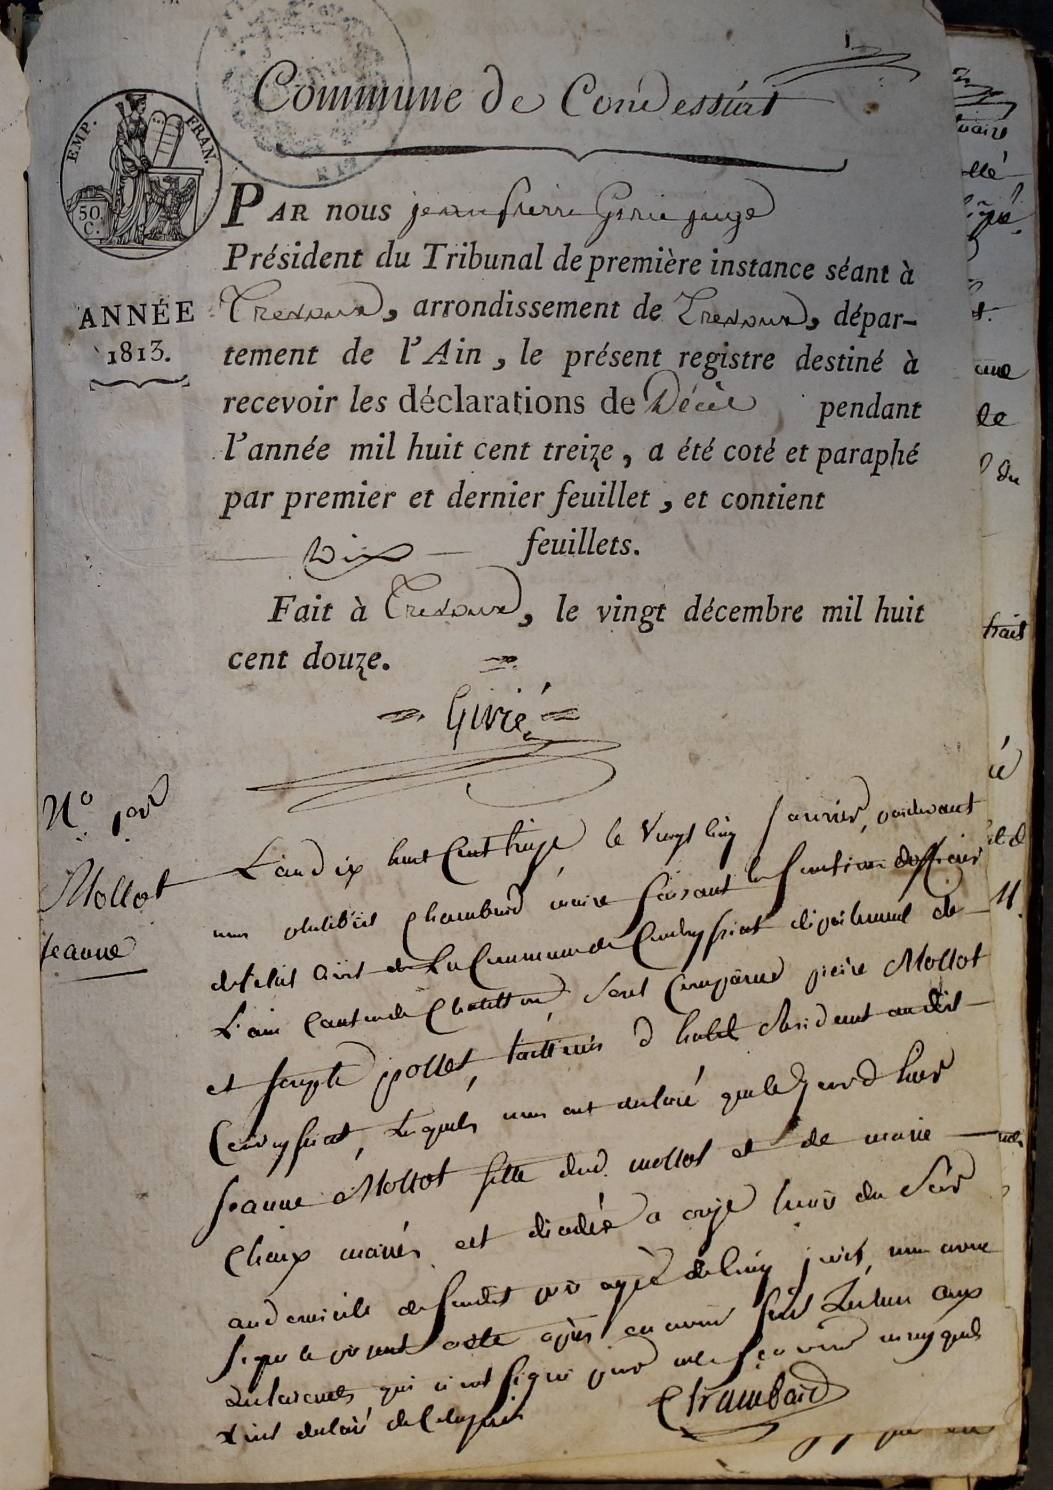 Commune de Condessiat
EMP. FRAN.
50 C.
PAR nous jean pierre Girié juge
Président du Tribunal de première instance séant à
ANNÉE
1813.
Trevoux, arrondissement de Trevoux, dépar-
tement de l'Ain, le présent registre destiné à
recevoir les déclarations de Décès pendant
l'année mil huit cent treize, a été coté et paraphé
par premier et dernier feuillet, et contient
Dix feuillets.
Fait à Trevoux, le vingt décembre mil huit
cent douze.
Girié
N° 1er
Mollot
jeanne
L'an dix huit Cent treize le Vingt cinq Janvier, pardevant
nous philibert Chambard maire faisant les fonctions d'officier
de l'état Civil de La Commune de Condeyssiat département de
L'ain Canton de Chatillon, Sont Comparus pierre Mollot
et Joseph pollet, résident au dit
Condeyssiat, Lesquels nous ont déclaré que le jour d hier
Jeanne Mollot fille dud. mollot et de marie
Chaux mariés est décédée a onze heures du Soir
au domicile de sesdits âgée de Cinq jours, nous avons
le présent acte après en avoir fait Lecture aux
déclarants qui n'ont signé pour ne Sçavoir
Chambard